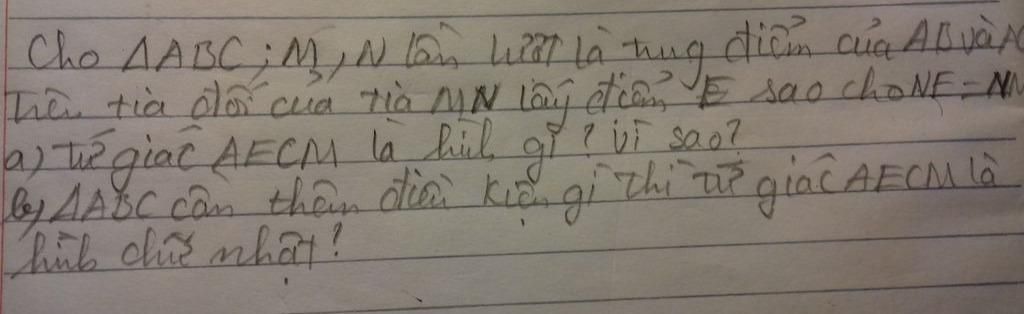 Cho ΔABC; M, N lần lượt là trung điểm của AB và A
Trên tia đối của tia MN lấy điểm E sao cho NE = NM
a) Tứ giác AECM là hình gì? Vì sao?
b) ΔABC cần thêm điều kiện gì thì tứ giác AECM là
hình chữ nhật?